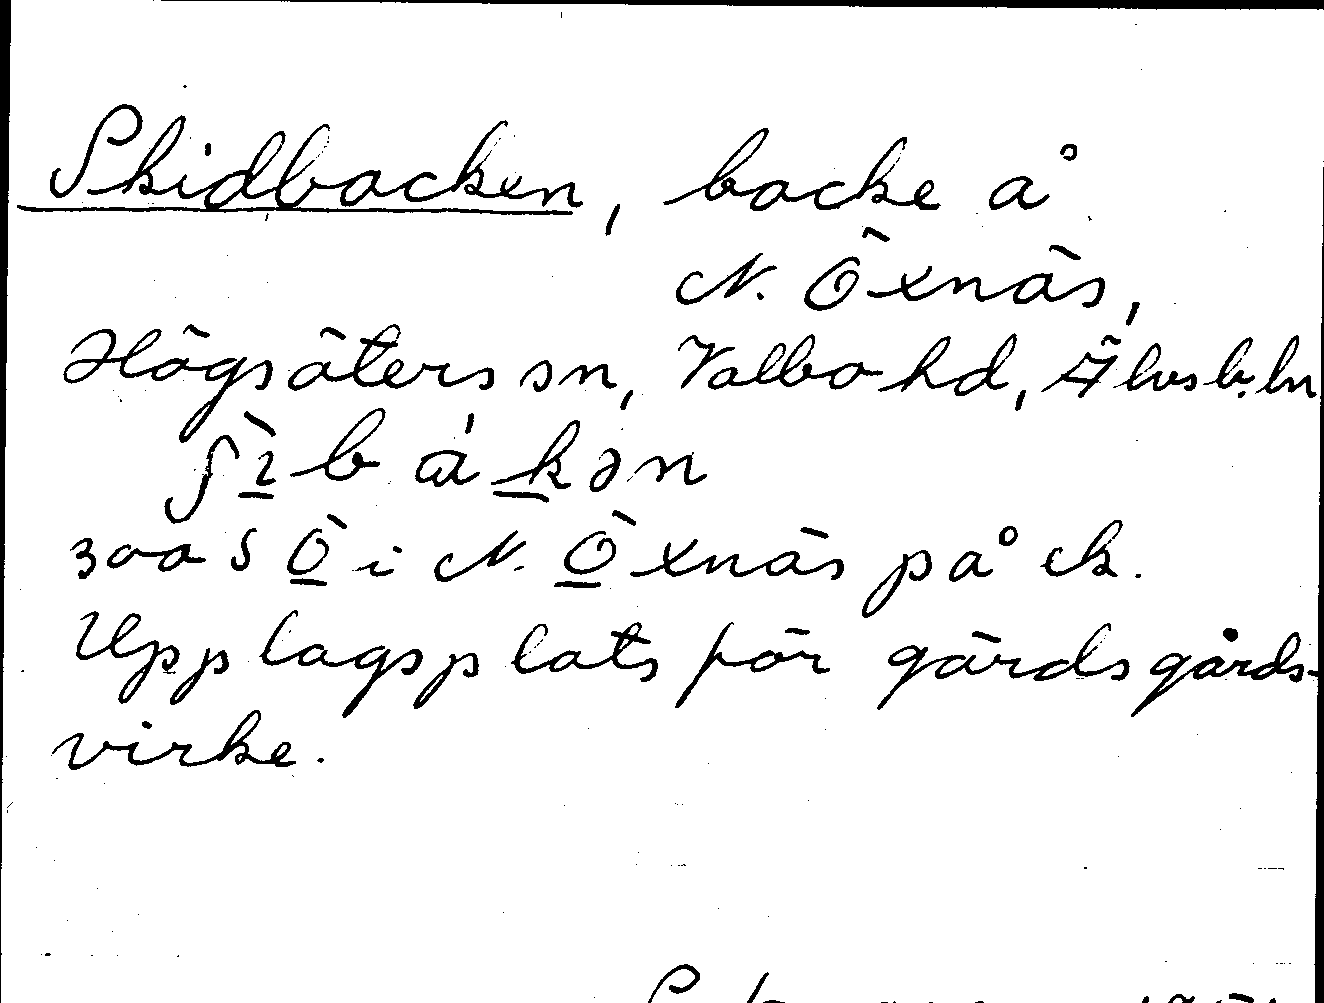 Skidbacken, backe å
N. Öxnäs,
Högsäters sn, Valbo hd, Älvsb. ln
ʃɪ̀bákən
300 S Ö i N. Öxnäs på ek.
Upplagsplats för gärdsgårds-
virke.